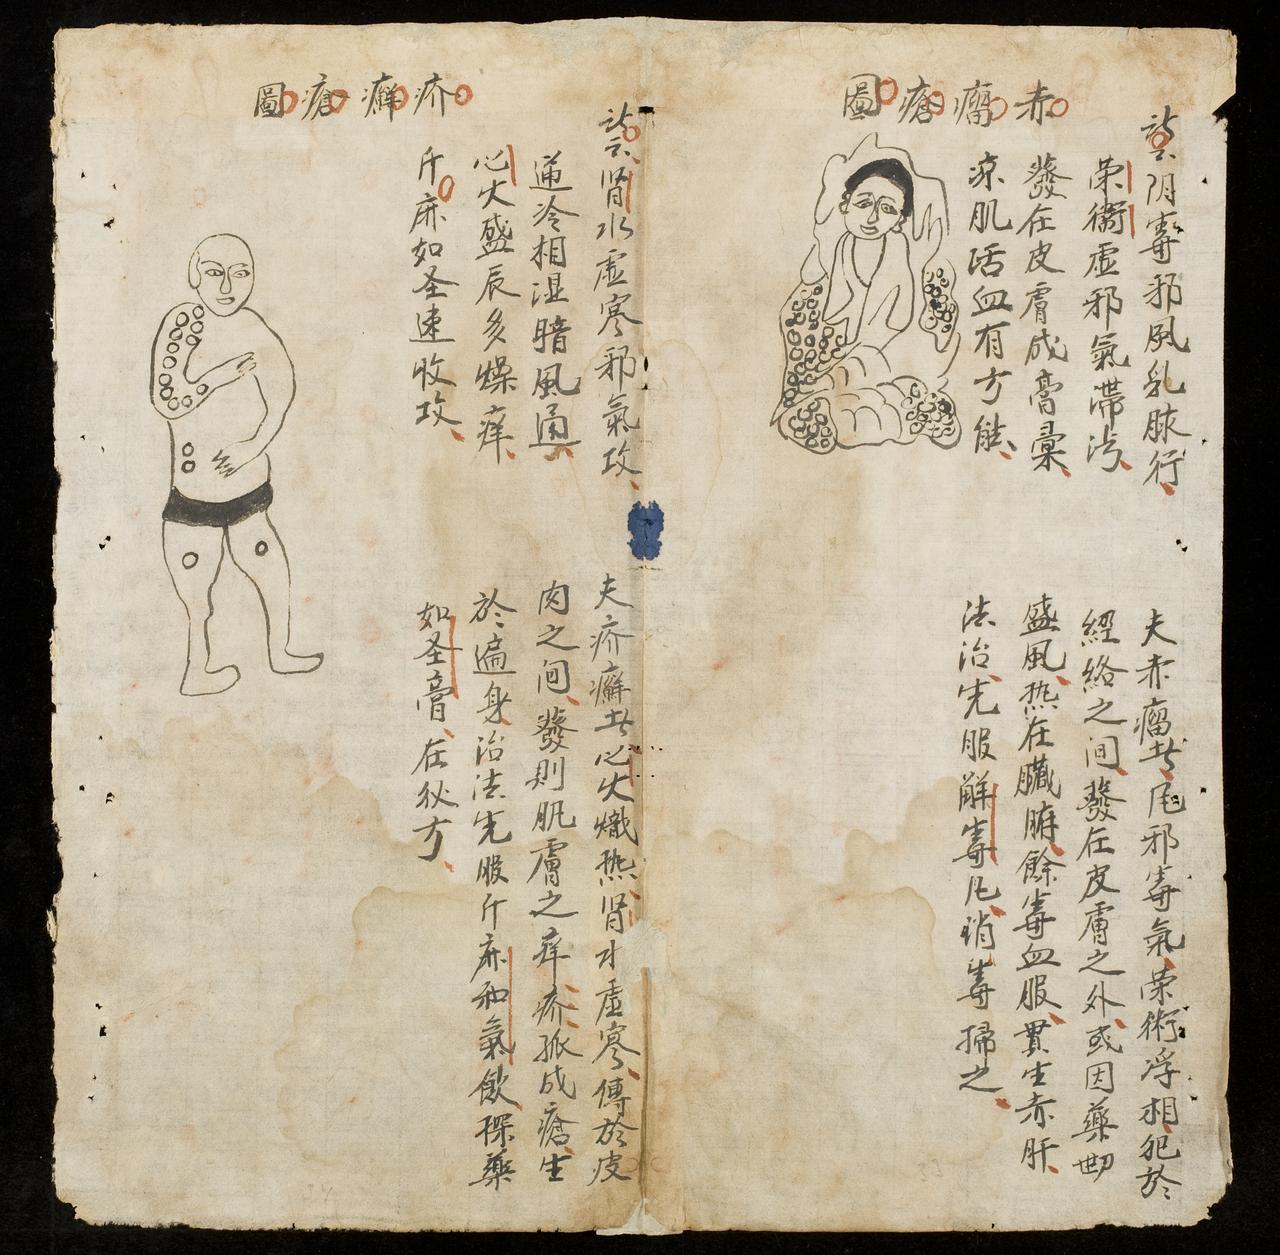 赤瘤瘡圖
訣云阴毒邪風乳脉行
荣衛虚邪氣滯汚
發在皮膚成膏藁
凉肌活血有方能
夫赤瘤者凡邪毒氣荣術浮相犯於
經絡之间發在皮膚之外或因藥
盛風热在臟腑餘毒血服貫生赤肝
法治先服解毒凡消毒掃之
疥癬瘡圖
訣云肾水虚寒邪氣攻
通冷相湿暗風通
心火盛辰多燥痒
斤麻如圣速收攻
夫疥癬者心火熾热肾水虚寒傳於皮
肉之间發則肌膚之痒疥抓成瘡生
於遍身治法先服斤麻和氣飲搽藥
如圣膏在秘方